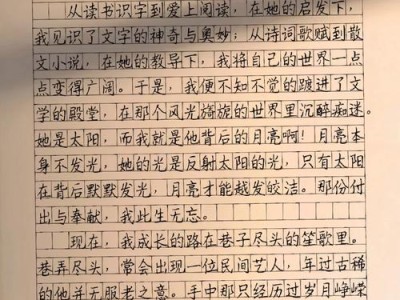 从读书识字到爱上阅读，在她的启发下，
我见识了文字的神奇与奥妙：从诗词歌赋到散
文小说，在她的教导下，我将自己的世界一点
点变得广阔。于是，我便不知不觉的踱进了文
学的殿堂，在那个风光旖旎的世界里沉醉痴迷。
她是太阳，而我就是他背后的月亮啊！月亮本
身不发光，她的光是反射太阳的光，只有太阳
在背后默默发光，月亮才能越发皎洁。那份付
出与奉献，我此生无忘。
现在，我成长的路在巷子尽头的笙歌里。
巷弄尽头，常会出现一位民间艺人，年过古稀
的他并无服老之意。手中那只经历过岁月峥嵘